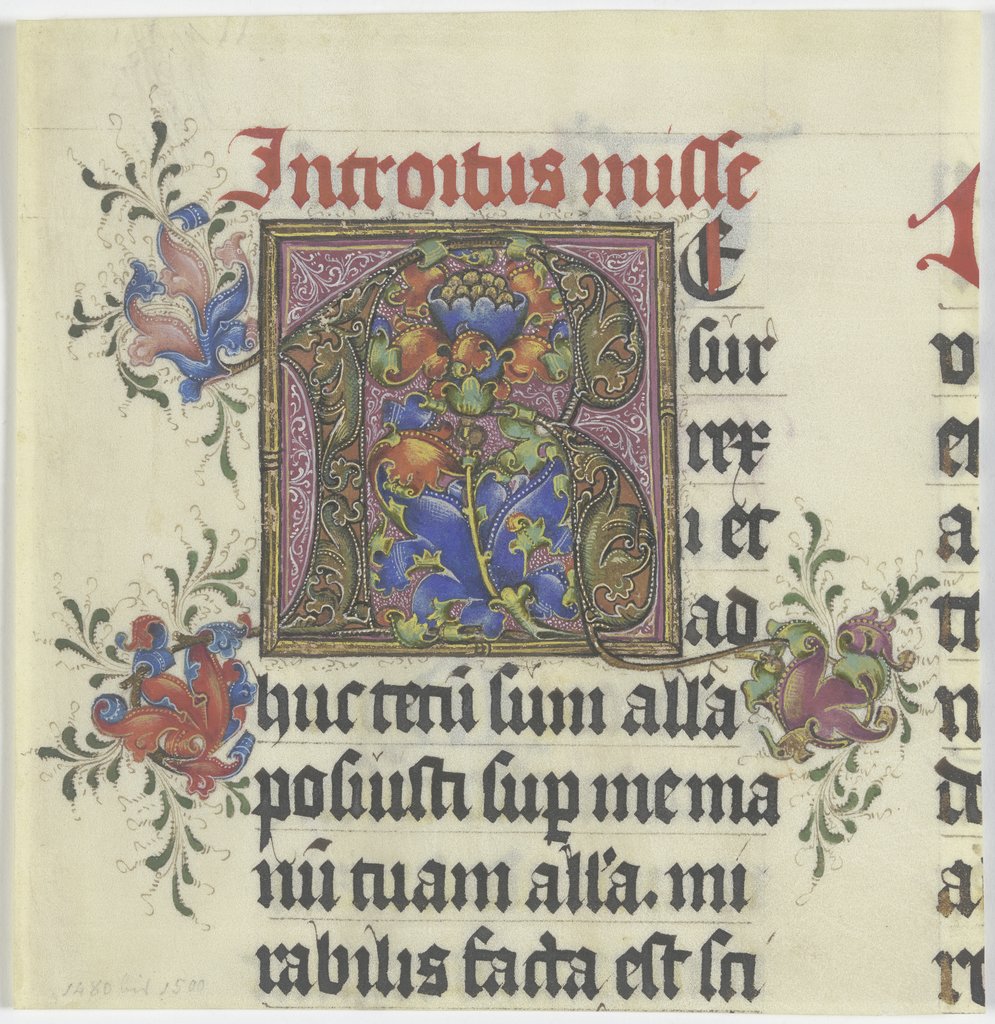 Introitus misse
R E
sur
rex
i et
ad
huc tecū sum all'a
posuisti sup me ma
nū tuam all'a. mi
rabilis facta est sci
1480 bis 1500